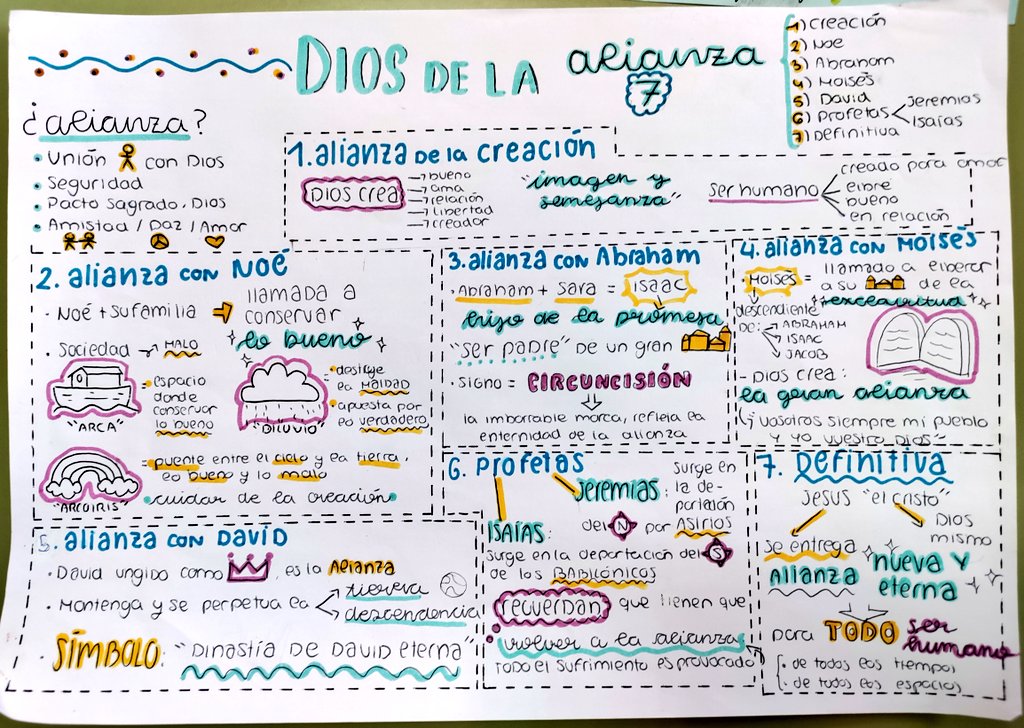 DIOS DE LA alianza
7
1) Creación
2) Noe
3) Abraham
4) Moisés
5) David
6) Profetas < Jeremias
Isaías
7) Definitiva
¿alianza?
• Unión con Dios
• Seguridad
• Pacto sagrado. Dios
• Amistad / Paz / Amor
1. alianza de la creación
DIOS crea
→ bueno
→ ama
→ relación
→ libertad
→ creador
"imagen y
semejanza"
Ser humano
creado para amor
libre
bueno
en relación
2. alianza con NOÉ
• Noé + su familia → llamada a
conservar
lo bueno
• Sociedad → MALO
"ARCA"
• espacio
donde
conservar
lo bueno
"DILUVIO"
• dostruye
la maldad
• apuesta por
lo verdadero
"ARCOIRIS"
= puente entre el cielo y la tierra,
lo bueno y lo malo
• cuidar de la creación •
3. alianza con Abraham
• Abraham + Sara = ISAAC
hijo de la promesa
"ser padre" de un gran
• signo = CIRCUNCISIÓN
la imborrable marca, refleja la
enternidad de la alianza
4. alianza con Moisés
• Moisés = llamado a liberar
a su de la
esclavitud
descendiente
de:
→ ABRAHAM
→ ISAAC
→ JACOB
- Dios crea:
la gran alianza
(¡ vosotros siempre mi pueblo
y yo vuestro Dios"
5. alianza con DAVID
• David ungido como , es la Alianza
• Mantenga y se perpetua la < tierra
descendencia
• SÍMBOLO: "Dinastía de David eterna"
6. Profetas
Jeremias: Surge en
la de-
portación
del N por Asirios
ISAÍAS:
surge en la deportación del S
de los Babilónicos
recuerdan que tienen que
volver a la alianza
todo el sufrimiento es provocado
7. Definitiva
Jesus "el cristo"
Dios
mismo
se entrega
Alianza nueva y
eterna
para TODO ser
humano
• de todos los tiempos
• de todos los espacios